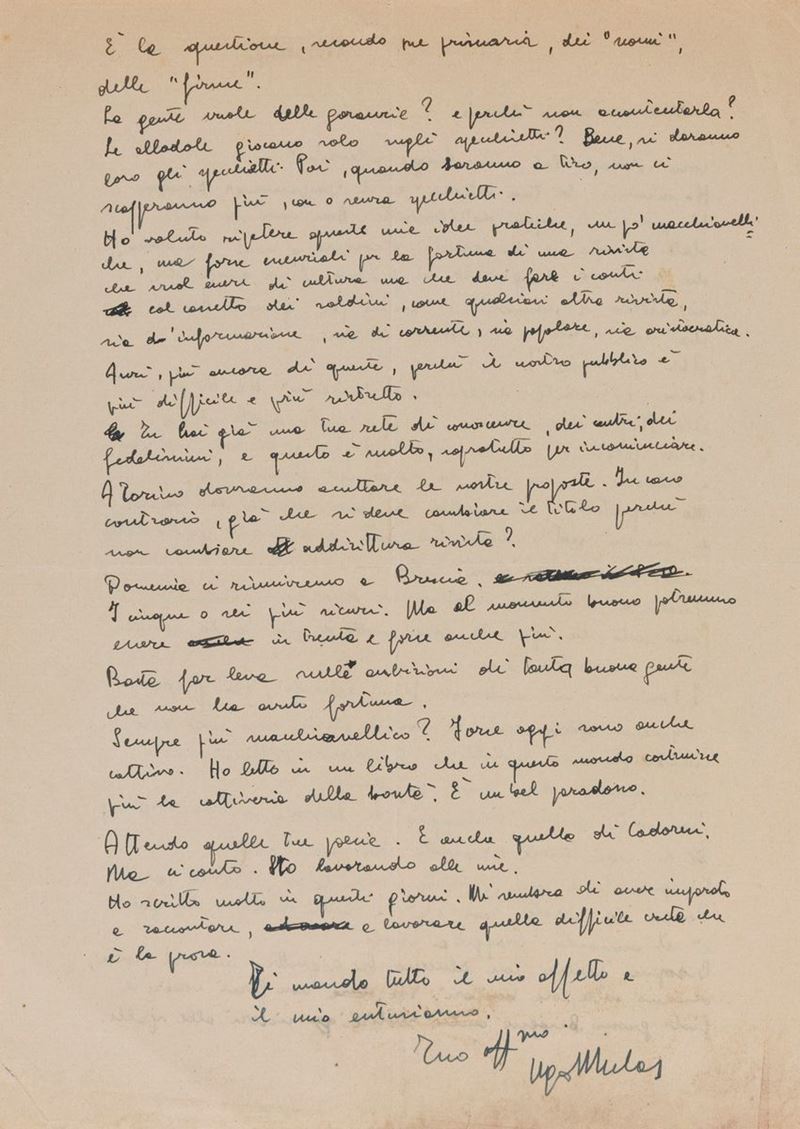 È la questione, secondo me primaria, dei "nomi",
delle "firme".
La gente vuole delle garanzie? e perchè non accontentarla?
Le allodole giocano solo sugli specchietti? Bene, si daranno
loro gli specchietti. Poi, quando saranno a tiro, non ci
scapperanno più, con o senza specchietti.
Ho voluto ripetere queste mie idee pratiche, un po' macchiavelli-
che, ma forse essenziali per la fortuna di una rivista
che vuol essere di cultura ma che deve fare i conti
col cassetto dei soldini, come qualsiasi altra rivista,
sia d'informazione, sia di corrente, sia popolare, sia aristocratica.
Anzi, più ancora di queste, perchè il nostro pubblico è
più difficile e più ristretto.
Tu hai già una tua rete di conoscenze, dei centri, dei
fedelissimi, e questo è molto, sopratutto per incominciare.
A Torino dovranno accettare le nostre proposte. In caso
contrario, già che si deve cambiare il titolo perchè
non cambiare addirittura rivista?
Domenica ci riuniremo a Brescia.
I cinque o sei più sicuri. Ma al momento buono potremmo
essere in trenta e forse anche più.
Basta far leva sulle ambizioni di tanta buona gente
che non ha avuto fortuna.
Sempre più macchiavellico? Forse oggi sono anche
cattivo. Ho letto in un libro che in questo mondo costruisce
più la cattiveria della bontà. È un bel paradosso.
Attendo quelle tue poesie. E anche quelle di Cadoresi.
Ma ci conto. Sto lavorando alle mie.
Ho scritto molto in questi giorni. Mi sembra di avere imparato
a raccontare, a lavorare quella difficile creta che
è la prosa.
Ti mando tutto il mio affetto e
il mio entusiasmo.
Tuo aff.mo
Ugo Mulas